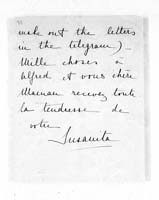 make out the letters
in the telegram.)
Mille choses à
Alfred et vous chère
Maman recevez toute
la tendresse de
votre
Susanita